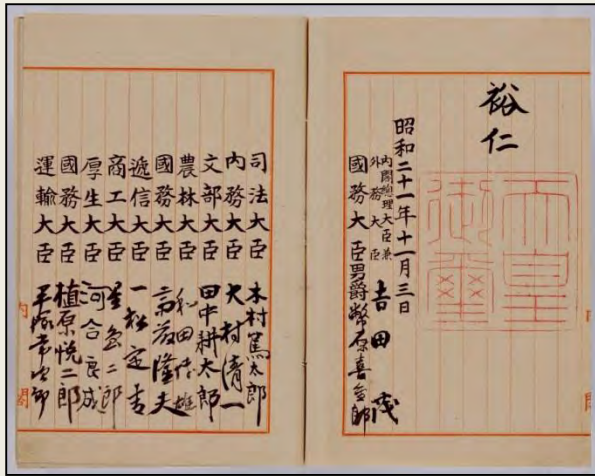 裕仁
天皇御璽
昭和二十一年十一月三日
內閣總理大臣兼
外務大臣
吉田茂
國務大臣男爵幣原喜重郎
司法大臣 木村篤太郎
內務大臣 大村清一
文部大臣 田中耕太郎
農林大臣 和田博雄
國務大臣 斎藤隆夫
遞信大臣 一松定吉
商工大臣 星島二郎
厚生大臣 河合良成
國務大臣 植原悦二郎
運輸大臣 平塚常次郎
內閣